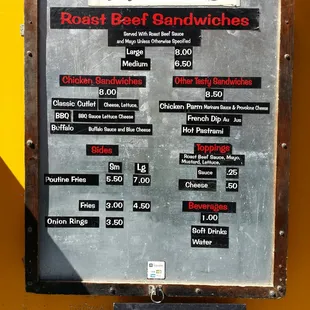 Roast Beef Sandwiches
Served With Roast Beef Sauce
and Mayo Unless Otherwise Specified
Large 8.00
Medium 6.50
Chicken Sandwiches
8.00
Classic Cutlet Cheese, Lettuce,
BBQ BBQ Sauce Lettuce Cheese
Buffalo Buffalo Sauce and Blue Cheese
Other Tasty Sandwiches
8.50
Chicken Parm Marinara Sauce & Provolone Cheese
French Dip Au Jus
Hot Pastrami
Sides
Sm Lg
Poutine Fries 5.50 7.00
Fries 3.00 4.50
Onion Rings 3.50
Toppings
Roast Beef Sauce, Mayo,
Mustard, Lettuce,
Sauce .25
Cheese .50
Beverages
1.00
Soft Drinks
Water